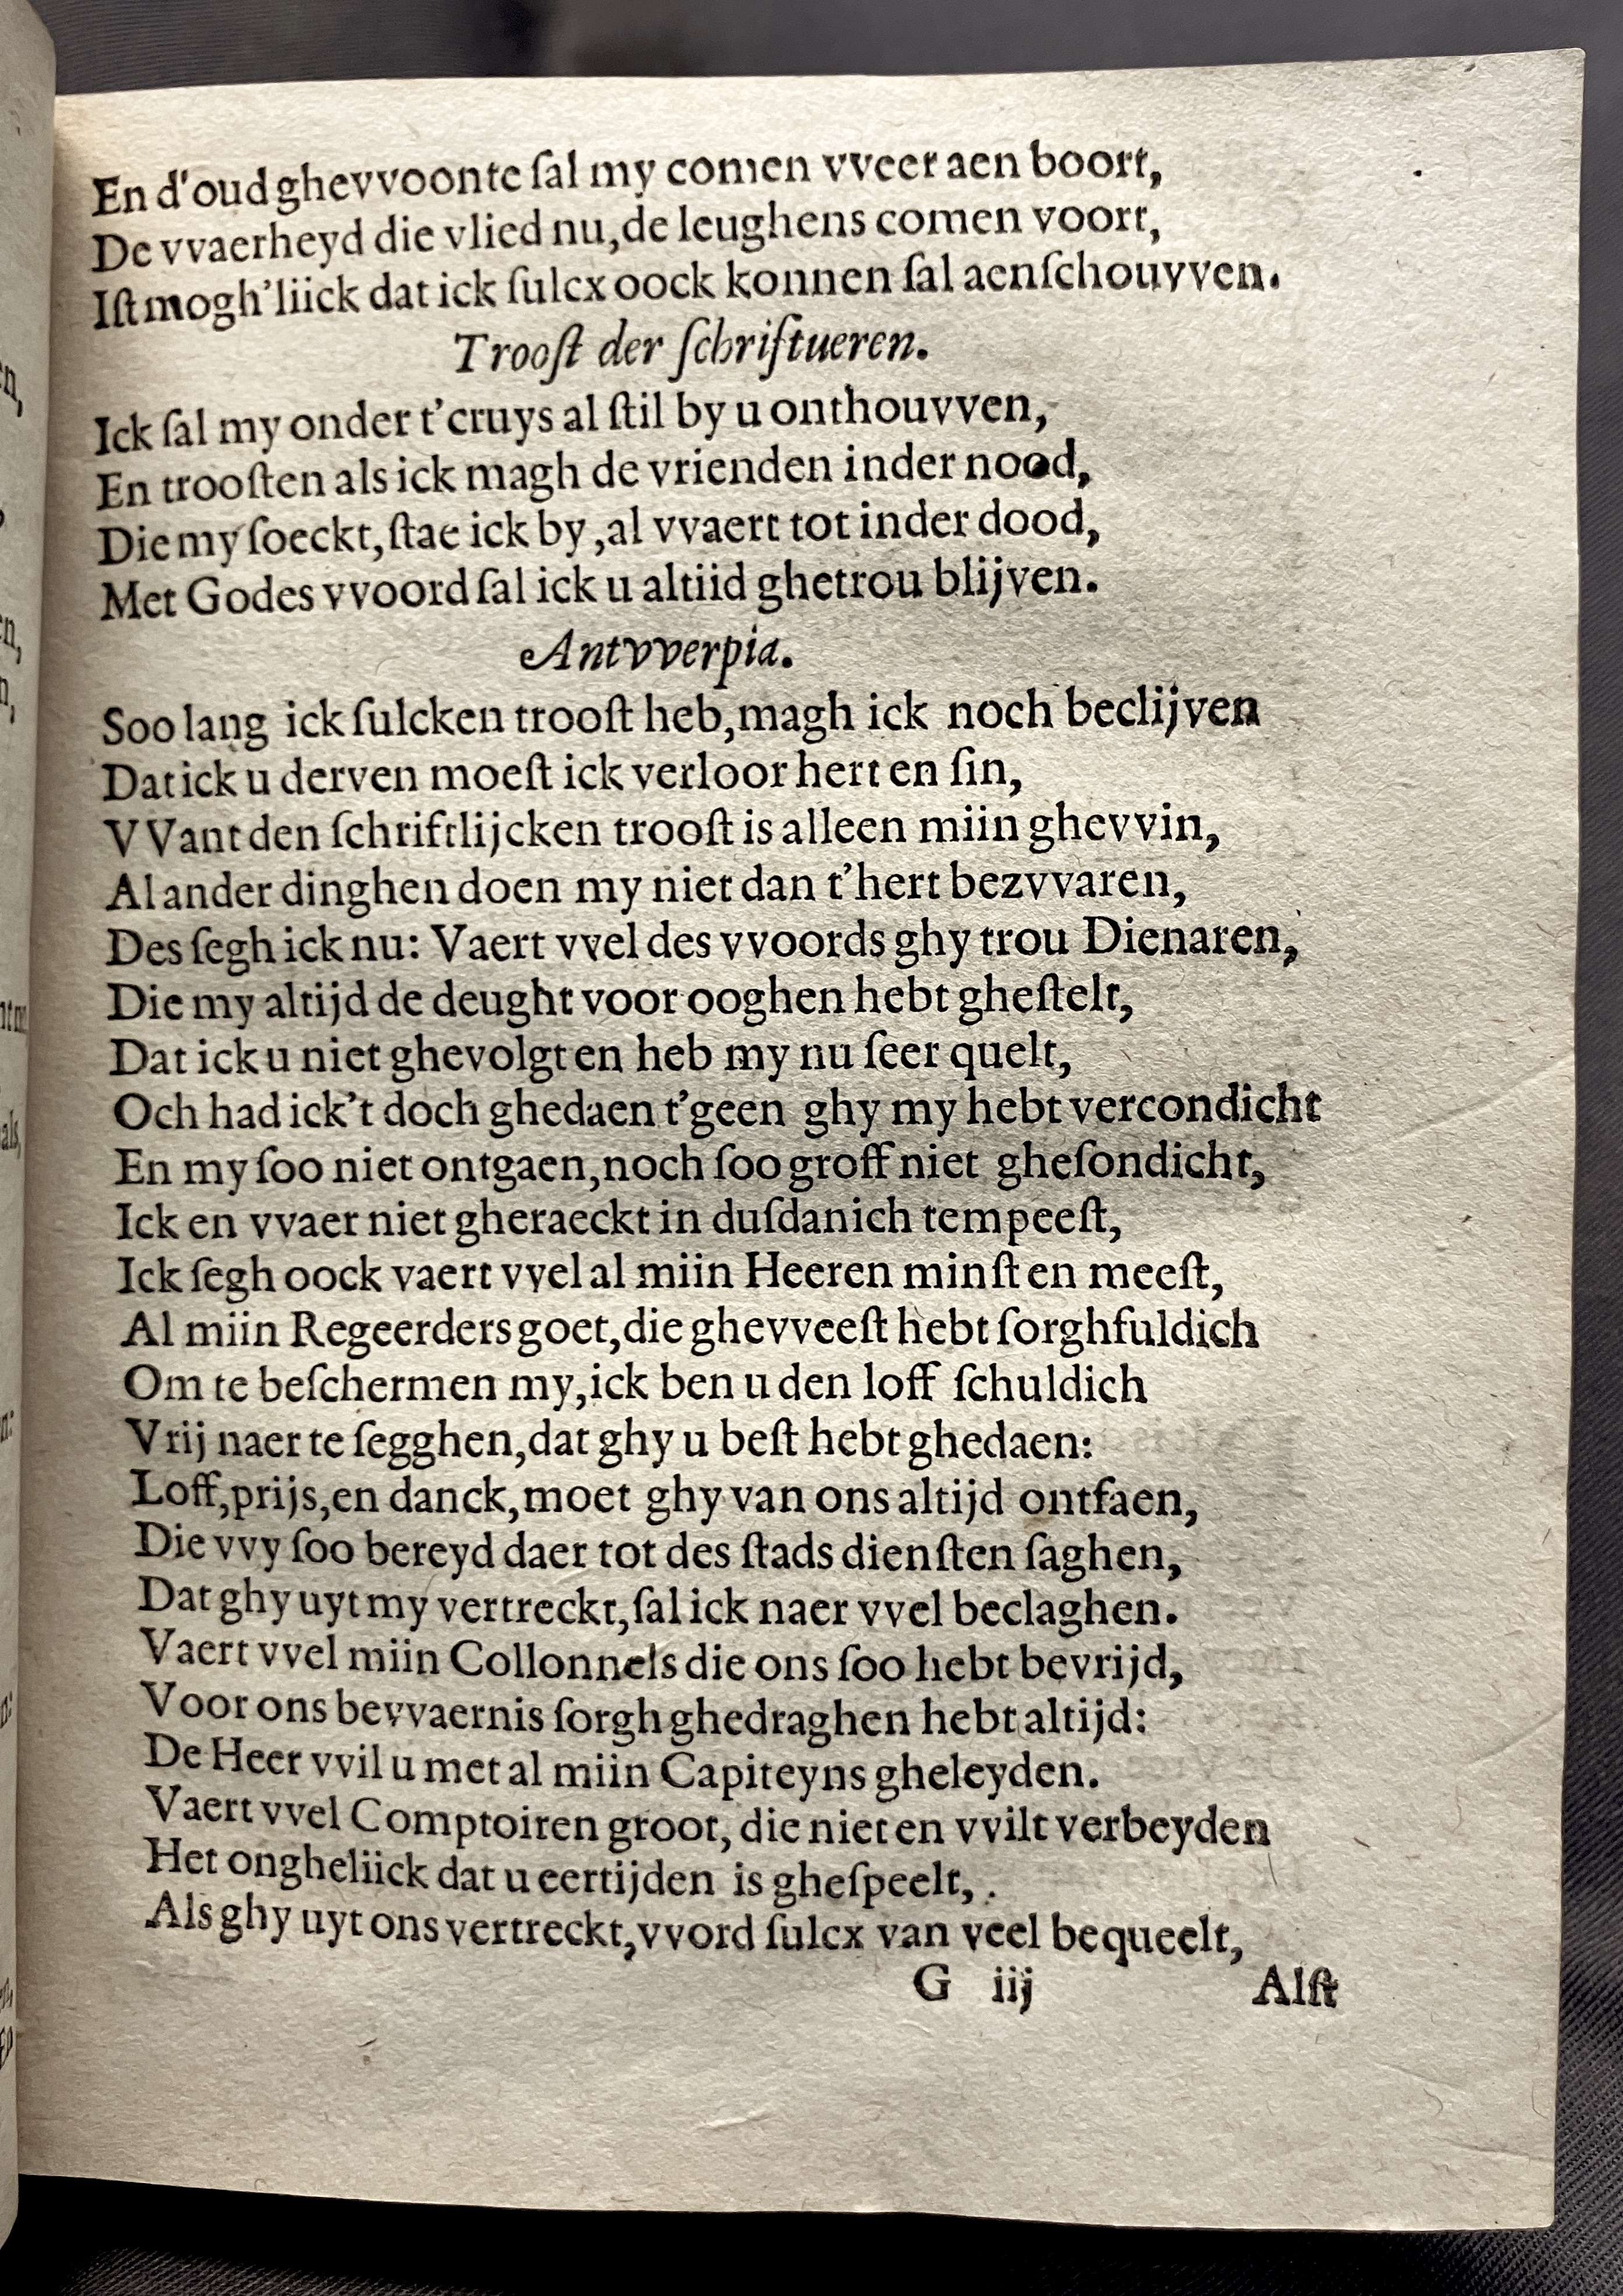 En d'oud ghevvoonte ſal my comen vveer aen boort,
De vvaerheyd die vlied nu, de leughens comen voort,
Iſt mogh'liick dat ick ſulcx oock konnen ſal aenſchouvven.
Trooſt der ſchriftueren.
Ick ſal my onder t'cruys al ſtil by u onthouvven,
En trooſten als ick magh de vrienden inder nood,
Die my ſoeckt, ſtae ick by, al vvaert tot inder dood,
Met Godes vvoord ſal ick u altiid ghetrou blijven.
Antvverpia.
Soo lang ick ſulcken trooſt heb, magh ick noch beclijven
Dat ick u derven moeſt ick verloor hert en ſin,
VVant den ſchriftlijcken trooſt is alleen miin ghevvin,
Al ander dinghen doen my niet dan t'hert bezvvaren,
Des ſegh ick nu: Vaert vvel des vvoords ghy trou Dienaren,
Die my altijd de deught voor ooghen hebt gheſtelt,
Dat ick u niet ghevolgt en heb my nu ſeer quelt,
Och had ick't doch ghedaen t'geen ghy my hebt vercondicht
En my ſoo niet ontgaen, noch ſoo groff niet gheſondicht,
Ick en vvaer niet gheraeckt in duſdanich tempeeſt,
Ick ſegh oock vaert vvel al miin Heeren minſt en meeſt,
Al miin Regeerders goet, die ghevveeſt hebt ſorghfuldich
Om te beſchermen my, ick ben u den loff ſchuldich
Vrij naer te ſegghen, dat ghy u beſt hebt ghedaen:
Loff, prijs, en danck, moet ghy van ons altijd ontfaen,
Die vvy ſoo bereyd daer tot des ſtads dienſten ſaghen,
Dat ghy uyt my vertreckt, ſal ick naer vvel beclaghen.
Vaert vvel miin Collonnels die ons ſoo hebt bevrijd,
Voor ons bevvaernis ſorgh ghedraghen hebt altijd:
De Heer vvil u met al miin Capiteyns gheleyden.
Vaert vvel Comptoiren groot, die niet en vvilt verbeyden
Het ongheliick dat u eertijden is gheſpeelt,
Als ghy uyt ons vertreckt, vvord ſulcx van veel bequeelt,
G iij Alſt